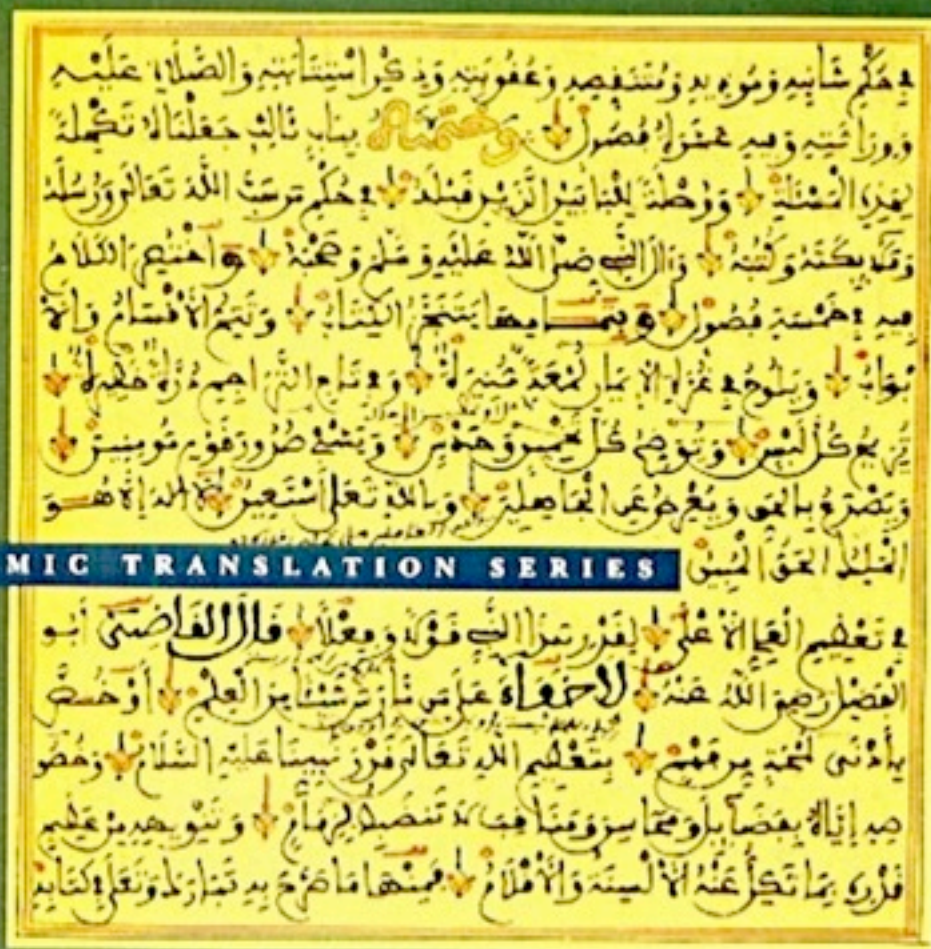 في حكم شانئه ومؤذيه ومتنقصه وعقوبته وذكر استتابته والصلاة عليه
ووراثته وفيه عشرة فصول وختمناه بباب ثالث جعلناه تكملة
لهذه المسئلة ووصلة للبابين الذين قبله في حكم من سب الله تعالى ورسله
وملايكته وكتبه وءال النبي صلى الله عليه وسلم وصحبه واختصر الكلام
فيه في خمسة فصول وبتمامها ينتجز الكتاب وتتم الأقسام والأ
بواب ويلوح في غرة الإيمان لمعة منيرة وفي تاج التراجم درة خطيرة
تزيح كل لبس وتوضح كل تخمين وحدس وتشفي صدور قوم مومنين
وتصدع بالحق وتعرض عن الجاهلين وبالله تعلى أستعين لا إله إلا هو
الملك الحق المبين
MIC TRANSLATION SERIES
في تعظيم العلي الأعلى لقدر هذا النبي قولا وفعلا قال القاضي أبو
الفضل رضي الله عنه لا خفاء على من مارس شيئا من العلم أو خص
بأدنى لمحة من فهم بتعظيم الله تعالى قدر نبينا عليه السلام وخصو
صه إياه بفضايل ومحاسن ومناقب لا تنضبط لزمام وتنويهه من عظيم
قدره بما تكل عنه الألسنة والأقلام فمنها ما صرح به تبارك وتعلى في كتابه